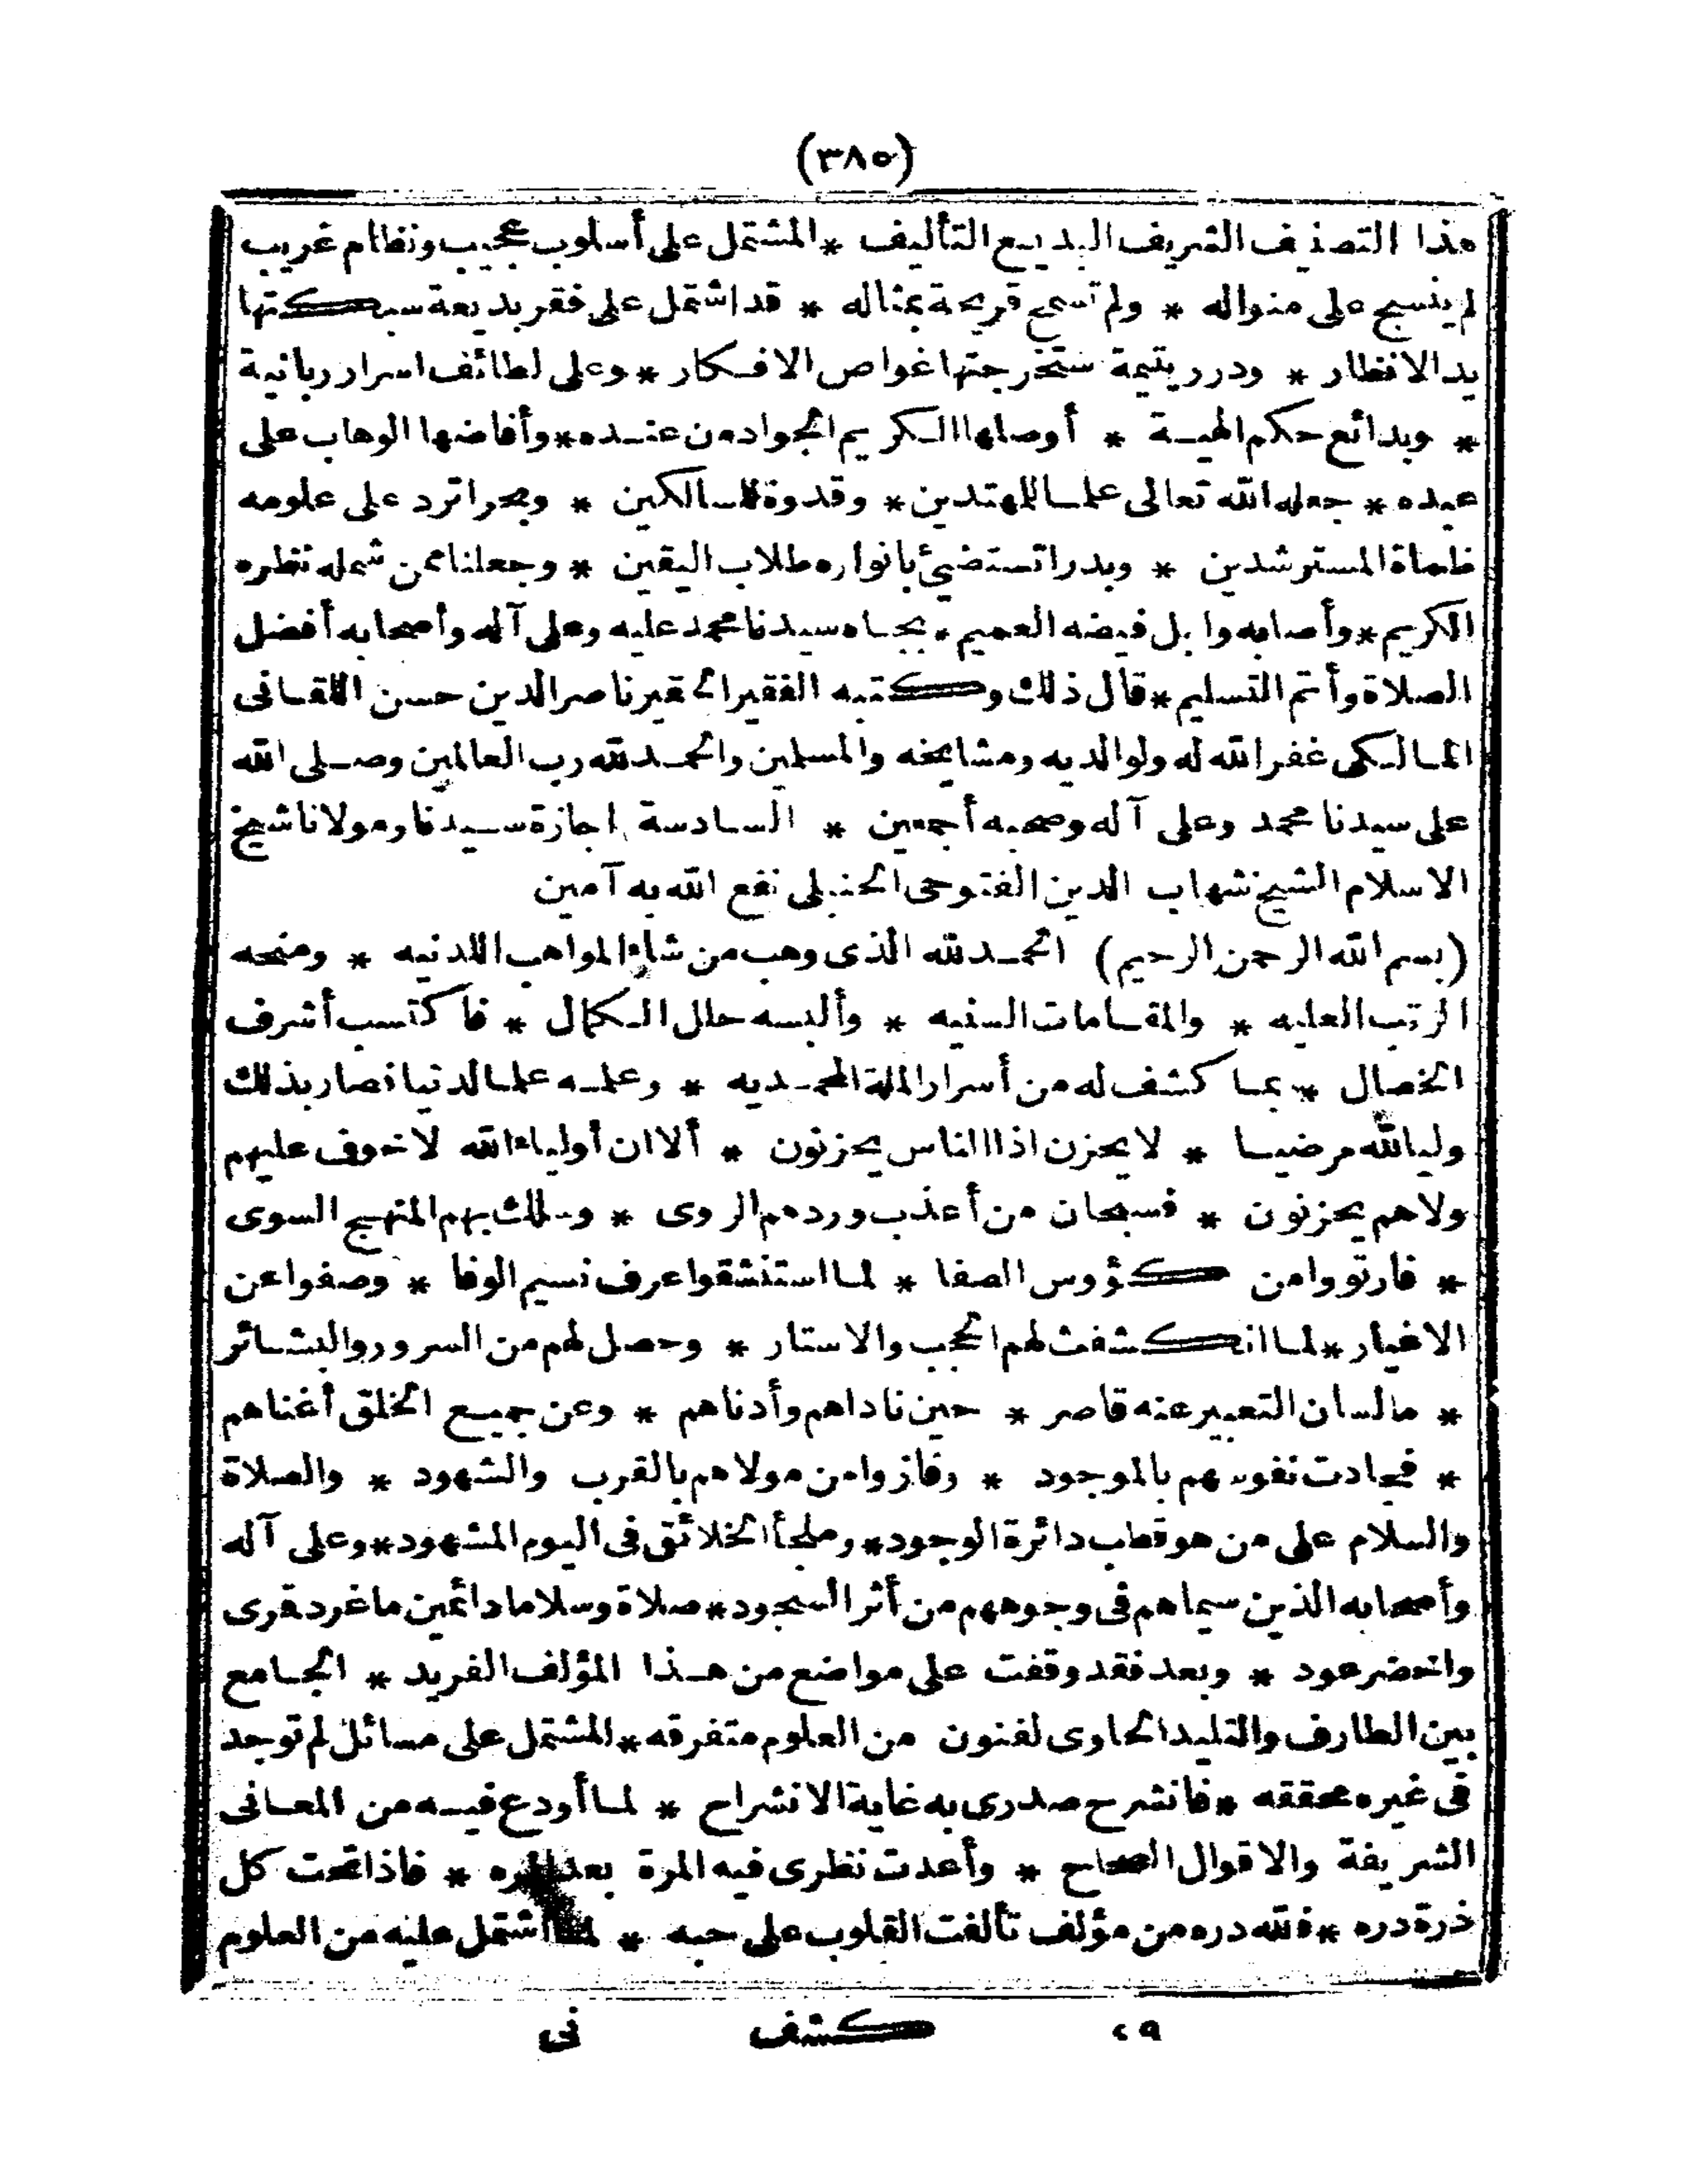 (٣٨٥)
هذا التصنيف الشريف البديع التأليف * المشتمل على أسلوب عجيب ونظام غريب
لم ينسج على منواله * ولم تسمح قريحة بمثاله * قد اشتمل على فقر بديعة سبكتها
يد الانظار * ودرر يتيمة ستخرجتها غواص الافكار * وعلى لطائف اسرار ربانية
* وبدائع حكم الهية * أوصلها الكريم الجواد من عنده * وأفاضها الوهاب على
عبده * جعله الله تعالى علما للمهتدين * وقدوة للسالكين * وبحرا ترد على علومه
ظماة المسترشدين * وبدرا تستضئ بانواره طلاب اليقين * وجعلنا ممن شمله نظره
الكريم * وأصابه وابل فيضه العميم * بجاه سيدنا محمد عليه وعلى آله وأصحابه أفضل
الصلاة وأتم التسليم * قال ذلك وكتبه الفقير الحقير ناصر الدين حسن اللقانى
المالكى غفر الله له ولوالديه ومشايخه والمسلمين والحمد لله رب العالمين وصلى الله
على سيدنا محمد وعلى آله وصحبه أجمعين * السادسة اجازة سيدنا ومولانا شيخ
الاسلام الشيخ شهاب الدين الفتوحى الحنبلى نفع الله به آمين
(بسم الله الرحمن الرحيم) الحمد لله الذى وهب من شاء المواهب اللدنيه * ومنحه
الرتب العليه * والمقامات السنيه * وألبسه حلل الكمال * فاكتسب أشرف
الخصال * بما كشف له من أسرار الملة المحمديه * وعلمه علما لدنيا فصار بذلك
وليا لله مرضيا * لا يحزن اذا الناس يحزنون * ألا ان أولياء الله لا خوف عليهم
ولا هم يحزنون * فسبحان من أعذب وردهم الروى * وسلك بهم المنهج السوى
* فارتووا من كؤوس الصفا * لما استنشقوا عرف نسيم الوفا * وصفوا عن
الاغيار * لما انكشفت لهم الحجب والاستار * وحصل لهم من السرور والبشائر
* ما لسان التعبير عنه قاصر * حين ناداهم وأدناهم * وعن جميع الخلق أغناهم
* فجادت نفوسهم بالموجود * وفازوا من مولاهم بالقرب والشهود * والصلاة
والسلام على من هو قطب دائرة الوجود * وملجأ الخلائق فى اليوم المشهود * وعلى آله
وأصحابه الذين سيماهم فى وجوههم من أثر السجود * صلاة وسلاما دائمين ما غرد قرى
واخضر عود * وبعد فقد وقفت على مواضع من هذا المؤلف الفريد * الجامع
بين الطارف والتليد الحاوى لفنون من العلوم متفرقه * المشتمل على مسائل لم توجد
فى غيره محققه * فانشرح صدرى به غاية الانشراح * لما أودع فيه من المعانى
الشريفة والاقوال الصحاح * وأعدت نظرى فيه المرة بعد المره * فاذا تحت كل
ذرة دره * فلله دره من مؤلف تألفت القلوب على حبه * لما اشتمل عليه من العلوم
٤٩ كشف نى